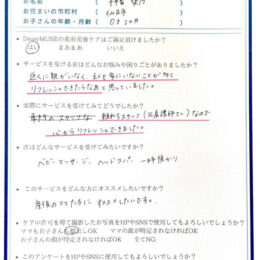 お名前
お住まいの市町村 仙台市
お子さんの年齢・月齢 0才2ヶ月
・DaisyMUSEの産前産後ケアはご満足頂けましたか？
はい まあまあ いいえ
・サービスを受ける前はどんなお悩みや困りごとがありましたか？
近くに親がいなく、
リフレッシュできたらなあと思っていました。
・実際にサービスを受けてみてどうでしたか？
スタッフ なので
心からリフレッシュできました。
・次はどんなサービスを受けてみたいですか？
ベビーマッサージ、ヘッドスパ、一時預かり
・このサービスをどんな方にオススメしたいですか？
産後のママたちに オススメしたいです。
・ケア中許可を得て撮影したお写真をHPやSNSで使用してもよろしいでしょうか？
ママもお子さんもOK ママの顔が特定されなければOK
お子さんの顔が特定されなければOK 全てNG
・このアンケートをHPやSNSに使用してもよろしいでしょうか？